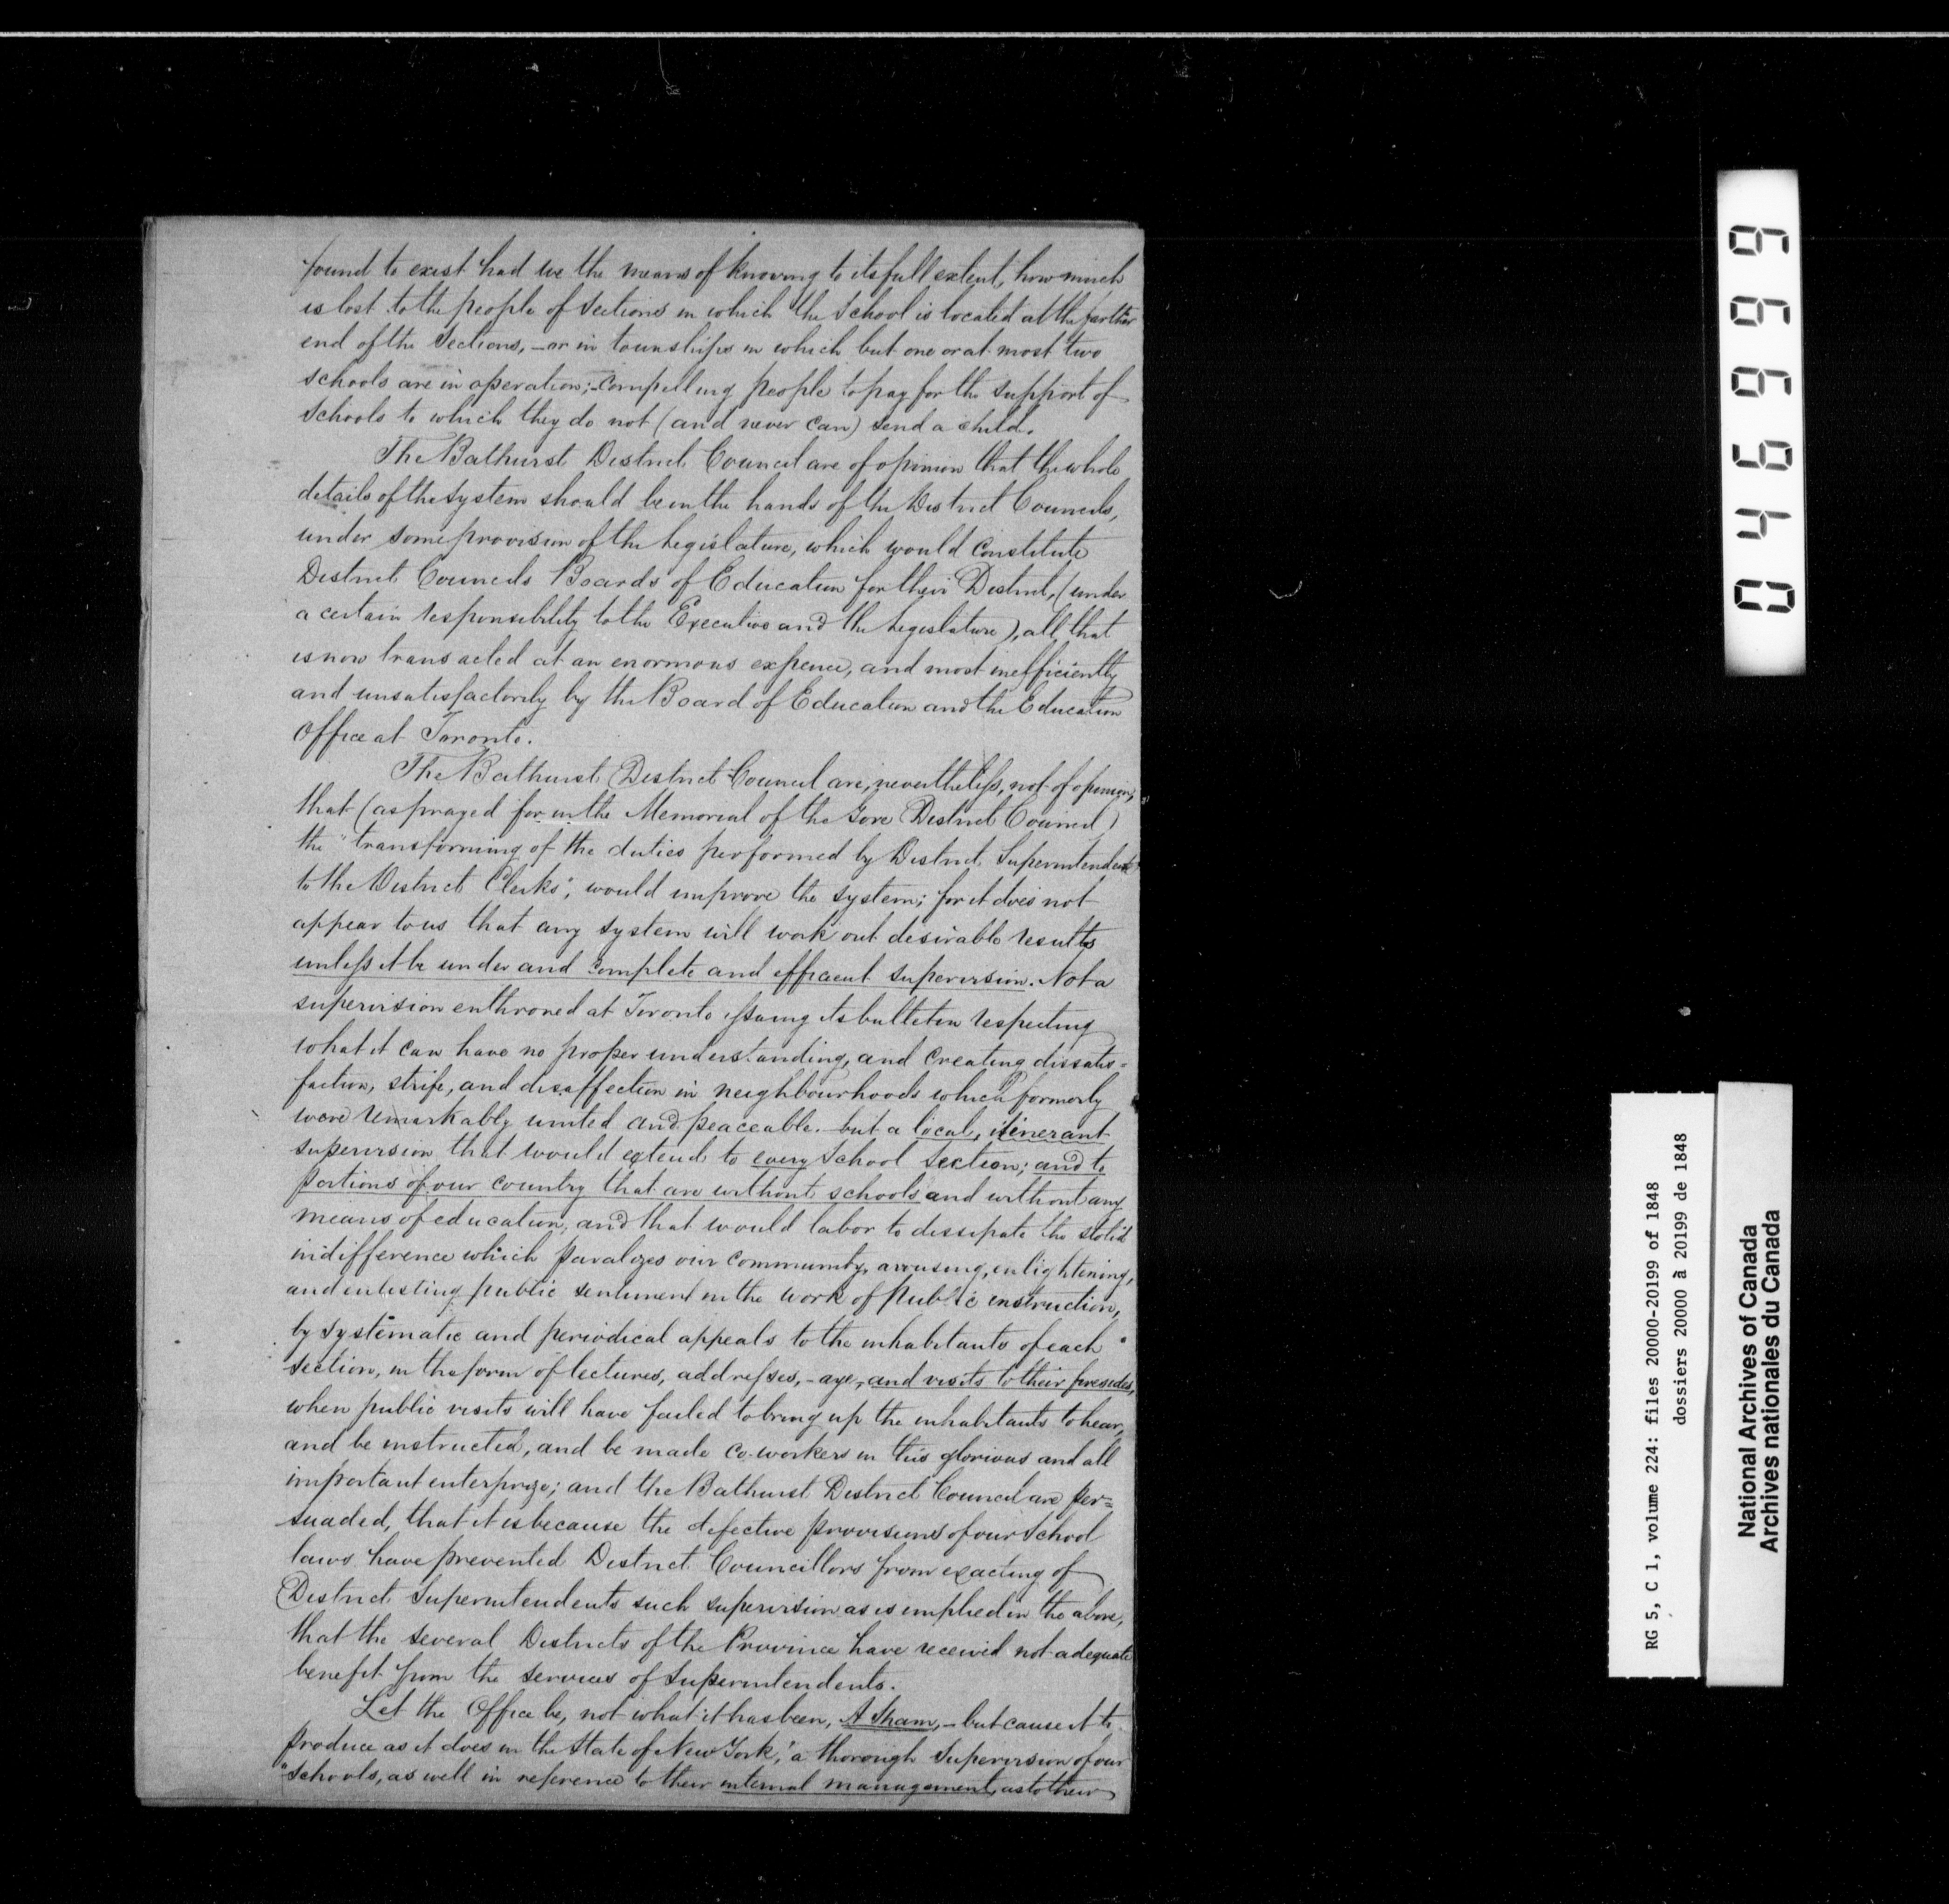 found to exist had we the means of knowing to its full extent, how much
is lost to the people of Sections in which the School is located at the farther
end of the Sections, – or in townships in which but one or at most two
schools are in operation; – compelling people to pay for the support of
Schools to which they do not (and never can) send a child.
The Bathurst District Council are of opinion that the whole
details of the System should be in the hands of the District Councils,
under some provision of the Legislature, which would constitute
District Councils Boards of Education for their District, (under
a certain responsibility to the Executive and the Legislature), all that
is now transacted at an enormous expence, and most inefficiently
and unsatisfactorily by the Board of Education and the Education
Office at Toronto.
The Bathurst District Council are, nevertheless, not of opinion,
that (as prayed for in the Memorial of the Gore District Council)
the "transforming of the duties performed by District Superintendents
to the District Clerks", would improve the system; for it does not
appear to us that any system will work out desirable results
unless it be under and complete and efficient supervision. Not a
supervision enthroned at Toronto issuing its bulletin respecting
what it can have no proper understanding, and creating dissatis=
faction, strife, and disaffection in neighbourhoods which formerly
were remarkably united and peaceable. but a local, itinerant
supervision that would extend to every School Section; and to
portions of our country that are without schools and without any
means of education, and that would labor to dissipate the stolid
indifference which paralizes our community, arousing, enlightening,
and enlisting public sentiment in the work of public instruction,
by systematic and periodical appeals to the inhabitants of each
section, in the form of lectures, addresses, – aye, and visits to their firesides,
when public visits will have failed to bring up the inhabitants to hear,
and be instructed, and be made co-workers in this glorious and all
important enterprize; and the Bathurst District Council are per=
suaded, that it is because the defective provisions of our School
laws have prevented District Councillors from exacting of
District Superintendents such supervision as is implied in the above,
that the several Districts of the Province have received not adequate
benefit from the services of Superintendents.
Let the Office be, not what it has been, A Sham, – but cause it to
produce as it does in the State of New York, "a thorough Supervision of our
"Schools, as well in reference to their internal management, as to their
046999
RG 5, C 1, volume 224: files 20000-20199 of 1848
dossiers 20000 à 20199 de 1848
National Archives of Canada
Archives nationales du Canada